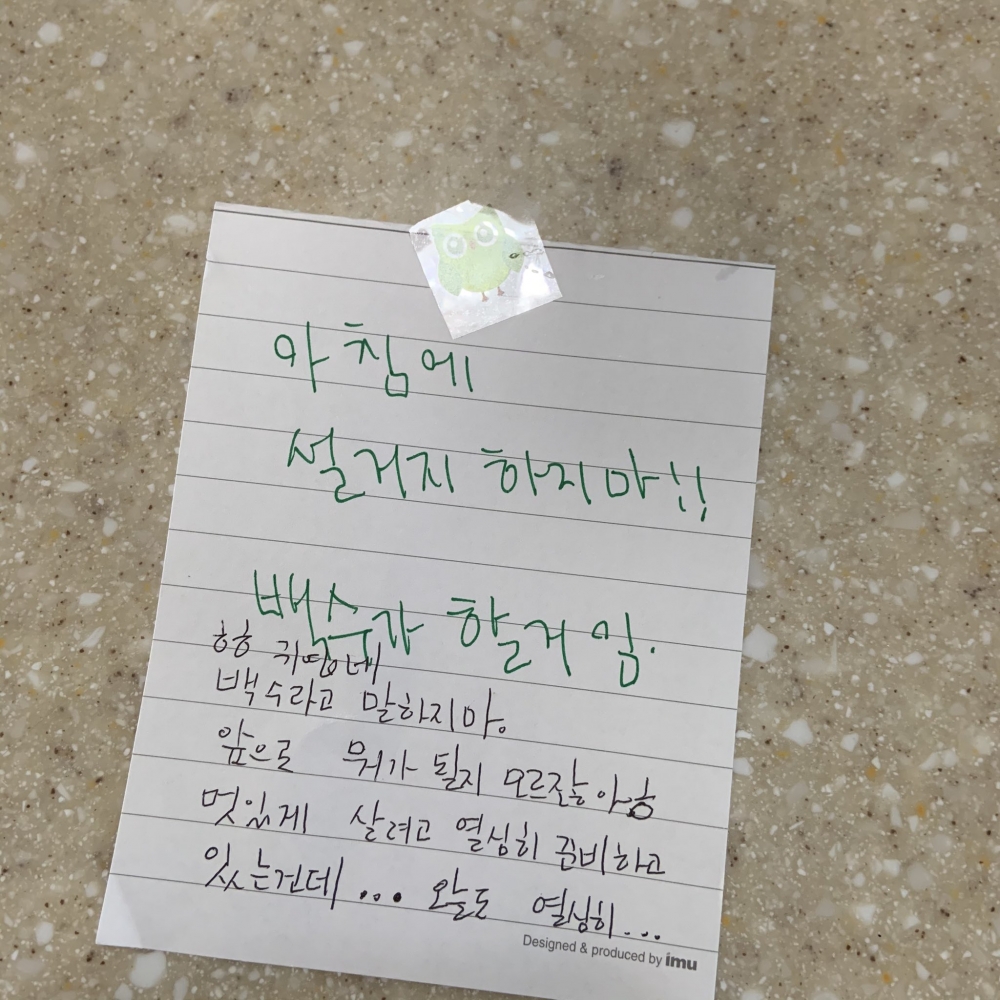 아침에
설거지 하지마!!
백수가 할거임.
흥흥 귀떵네
백수라고 말하지마.
앞으로 뭐가 될지 모르잖아흥
멋있게 살려고 열심히 준비하고
있는건데... 오늘도 열심히...
Designed & produced by imu